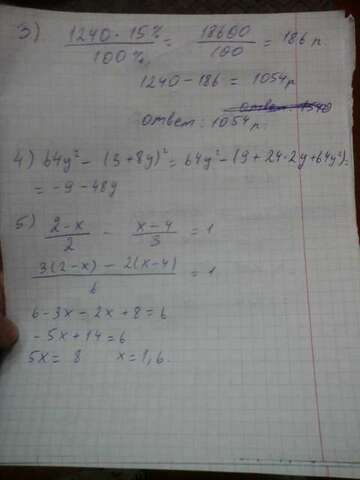 3) 1240 · 15% / 100% = 18600 / 100 = 186 р.
1240 - 186 = 1054 р
ответ: 1054 р.
4) 64y² - (3 + 8y)² = 64y² - (9 + 24·2y + 64y²) =
= -9 - 48y
5) 2-x / 2 - x-4 / 3 = 1
3(2-x) - 2(x-4) / 6 = 1
6 - 3x - 2x + 8 = 6
-5x + 14 = 6
5x = 8 x = 1,6.